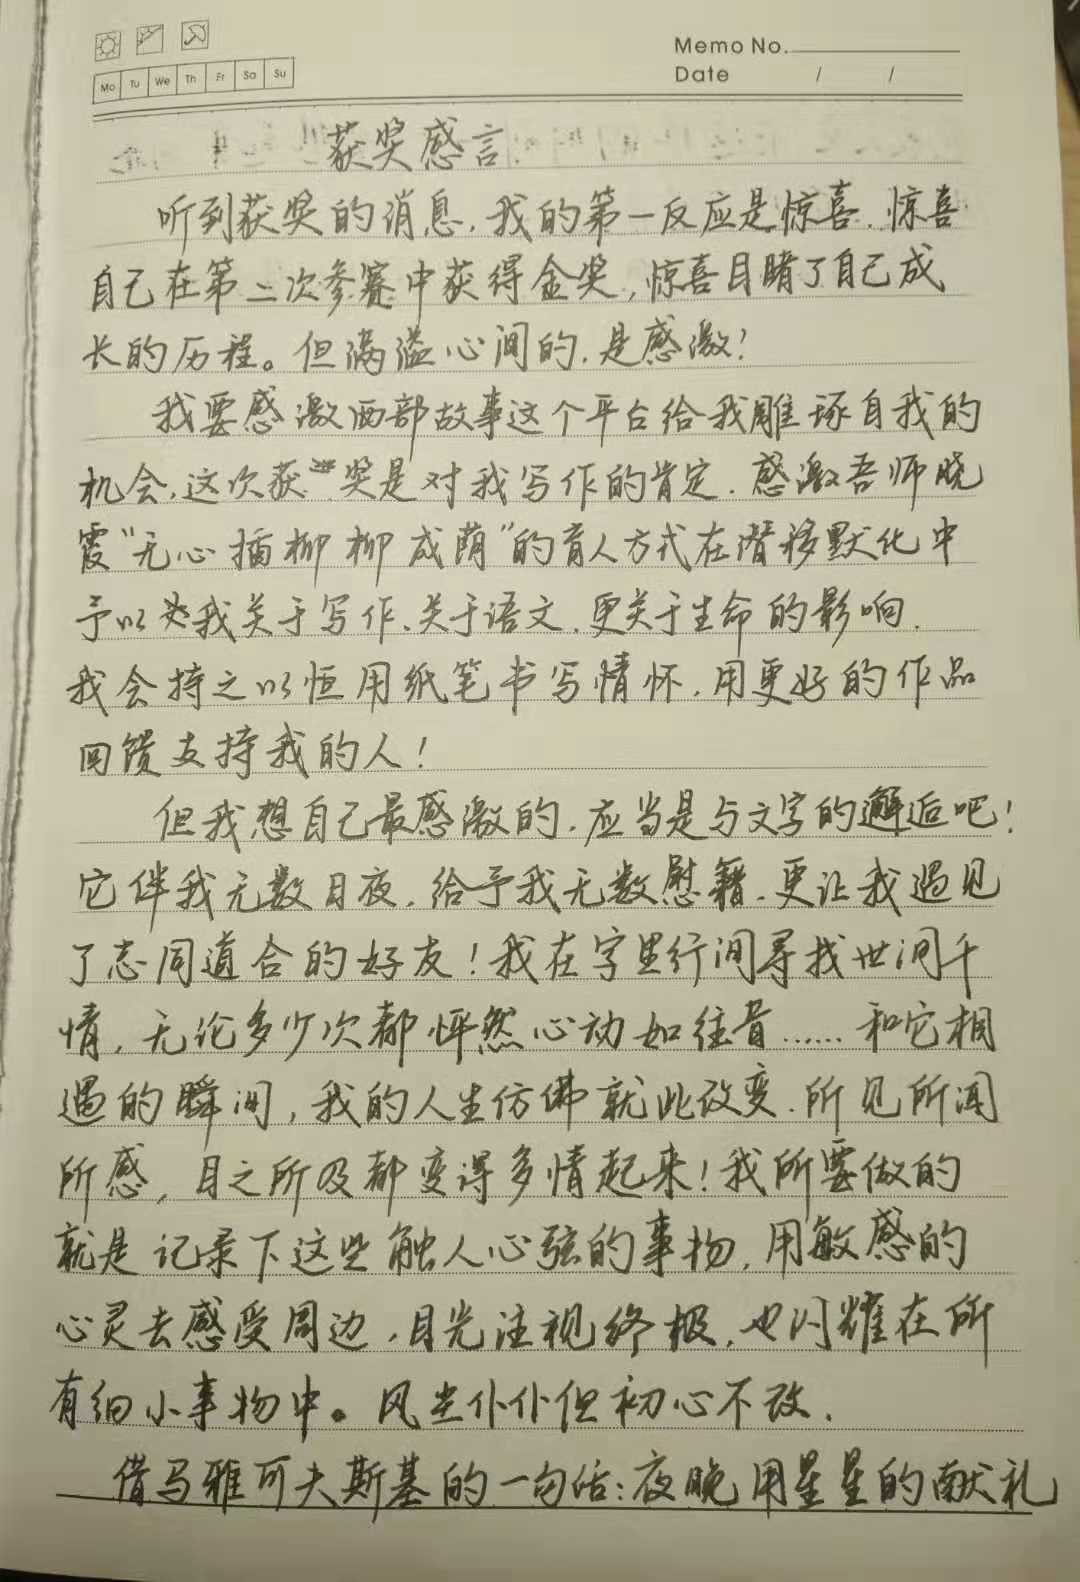 Memo No.
Date / /
Mo Tu We Th Fr Sa Su
获奖感言
听到获奖的消息,我的第一反应是惊喜.惊喜
自己在第二次参赛中获得金奖,惊喜目睹了自己成
长的历程。但满溢心间的,是感激!
我要感激西部故事这个平台给我雕琢自我的
机会,这次获奖是对我写作的肯定.感激吾师晓
霞“无心插柳柳成荫”的育人方式在潜移默化中
予以我关于写作、关于语文,更关于生命的影响.
我会持之以恒用纸笔书写情怀,用更好的作品
回馈支持我的人!
但我想自己最感激的,应当是与文字的邂逅吧!
它伴我无数日夜,给予我无数慰籍,更让我遇见
了志同道合的好友!我在字里行间寻找世间千
情,无论多少次都怦然心动如往昔……和它相
遇的瞬间,我的人生仿佛就此改变.所见所闻
所感,目之所及都变得多情起来!我所要做的
就是记录下这些触人心弦的事物,用敏感的
心灵去感受周边,目光注视终极,也闪耀在所
有细小事物中。风尘仆仆但初心不改.
借马雅可夫斯基的一句话:夜晚用星星的献礼